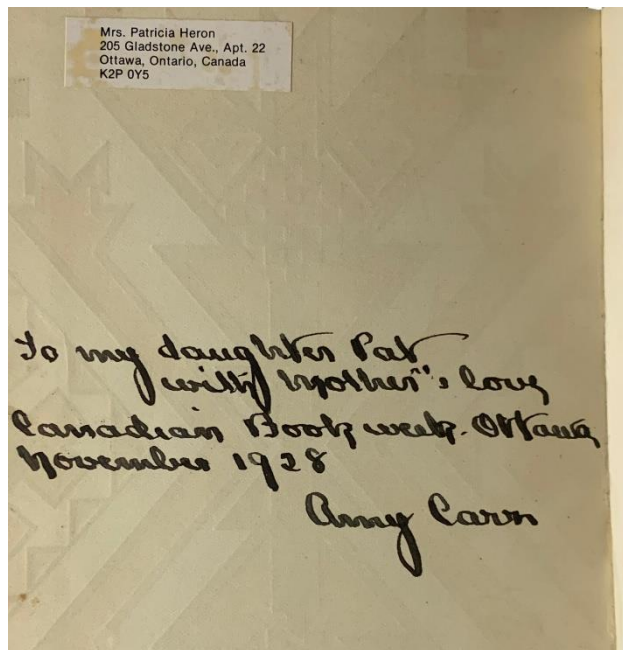 Mrs. Patricia Heron
205 Gladstone Ave., Apt. 22
Ottawa, Ontario, Canada
K2P 0Y5
To my daughter Pat
with Mother"s love
Canadian Book week. Ottawa
November 1928
Amy Carr